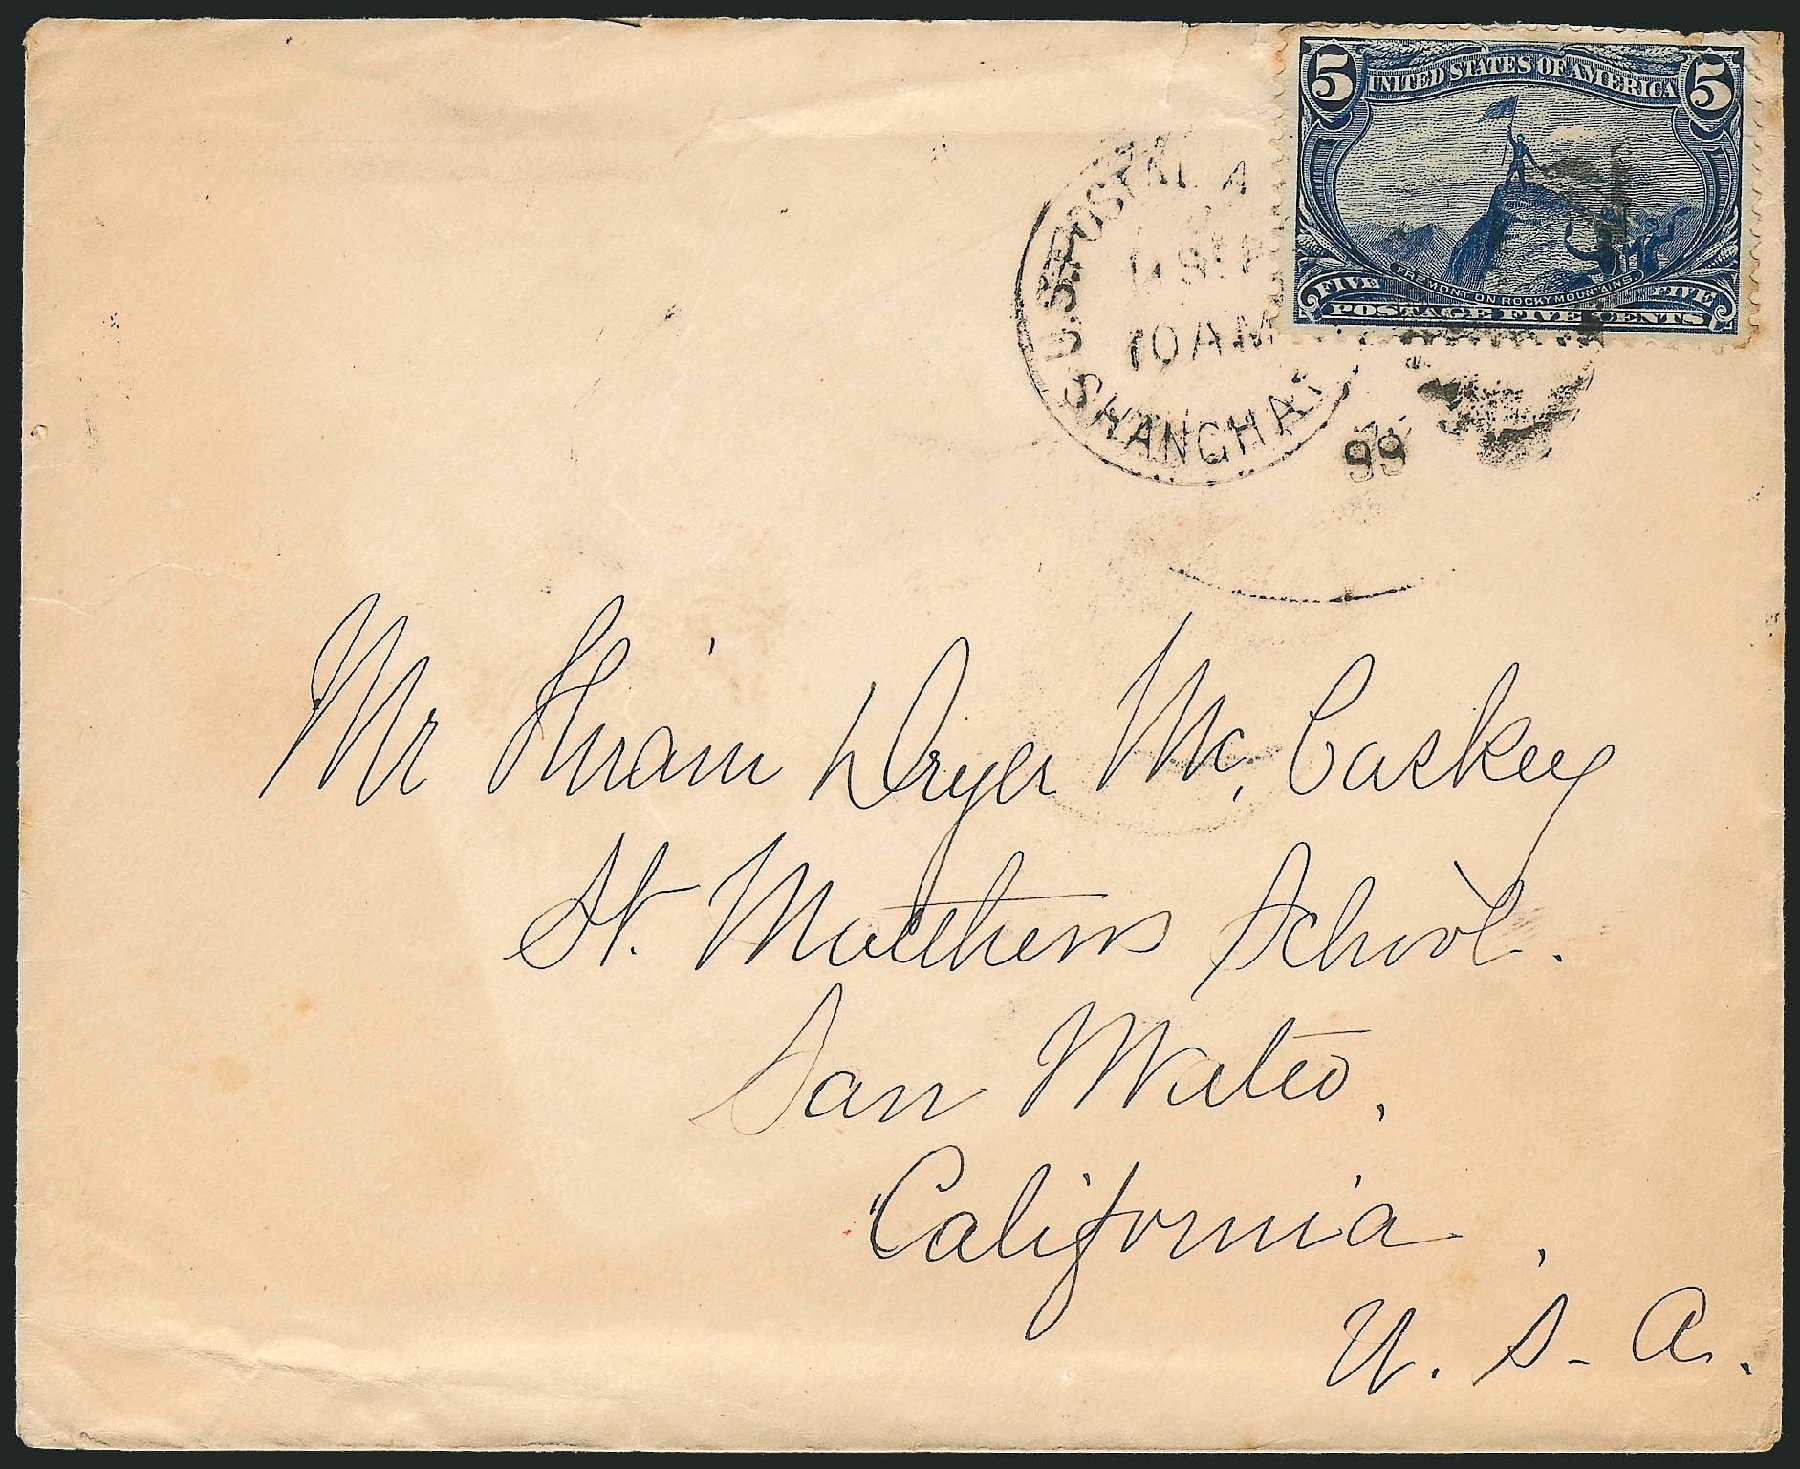 5 UNITED STATES OF AMERICA 5
FREMONT ON ROCKY MOUNTAINS
FIVE FIVE
POSTAGE FIVE CENTS
U.S. POSTAL A
10 AM
SHANGHAI
99
Mr Hiram Dryer Mc, Caskey
St. Matthews School.
San Mateo,
California,
U. S- A.